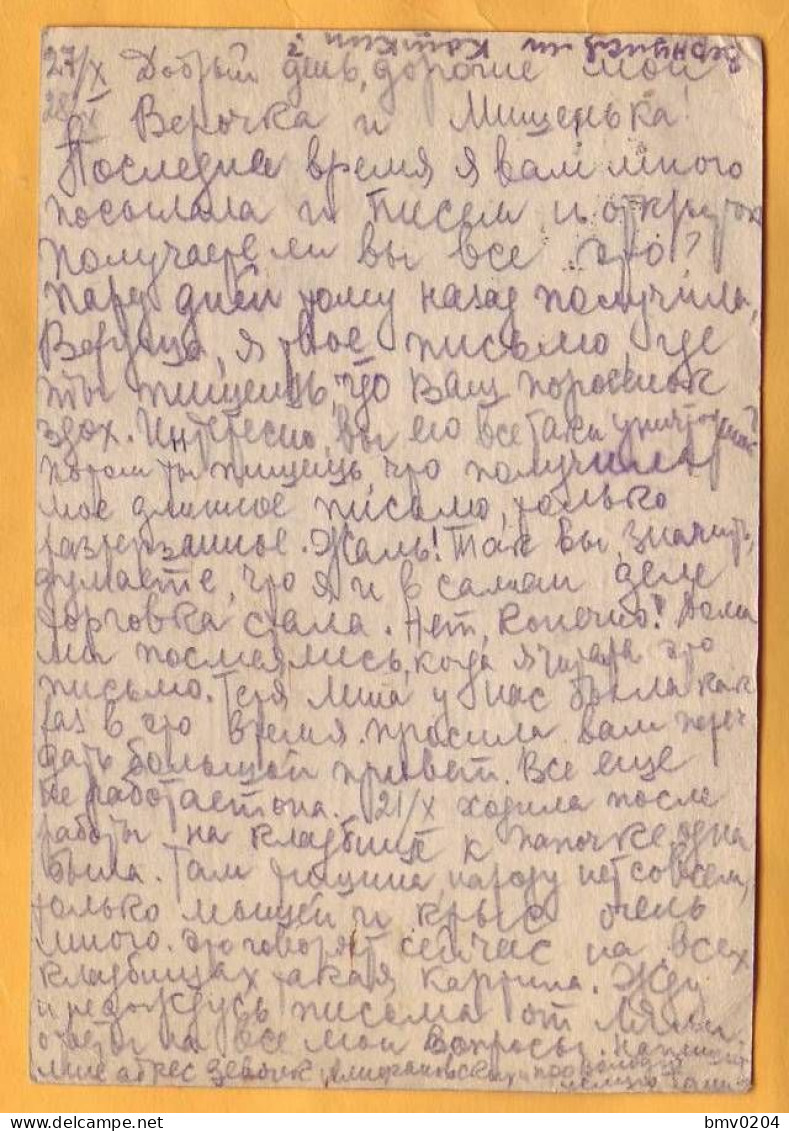 вернулись ли Кошкин ?
27/X Добрый день, дорогие мои
28/X Верочка и Мишенька!
Последнее время я вам много
посылала и писем и открыток
получаете ли вы все это?
Пару дней тому назад получила,
Веруша, я твое письмо, где
ты пишешь, что Ваш поросенок
здох. Интересно, вы его все таки
потом ты пишешь, что получила
мое длинное письмо, только
растерзанное. Жаль! Так вы, значит,
думаете, что я и в самом деле
торговка стала. Нет, конечно! Дома
мы посмеялись, когда я читала это
письмо. Тетя Миша у нас была как
раз в это время. просила вам пере
дать большой привет. Все еще
не работает она. 21/X ходила после
работы на кладбище к папочке, одна
была. Там тишина, народу нет совсем,
только мышей и крыс очень
много. Это говорят сейчас на всех
кладбищах такая картина. Жду
и не дождусь письма от
ответы на все мои вопросы. напишите
мне адрес
delcampe.net
bmv0204